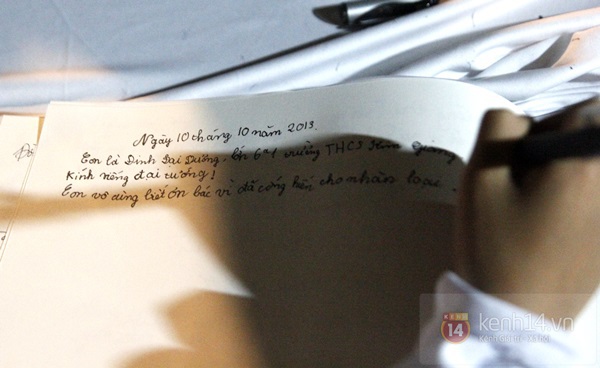 Ngày 10 tháng 10 năm 2013.
Con là Đinh Đại Dương, lớp 6a1 trường THCS Kim Giang
Kính viếng đại tướng!
Con vô cùng biết ơn bác vì đã cống hiến cho nhân loại.
14
kenh14.vn